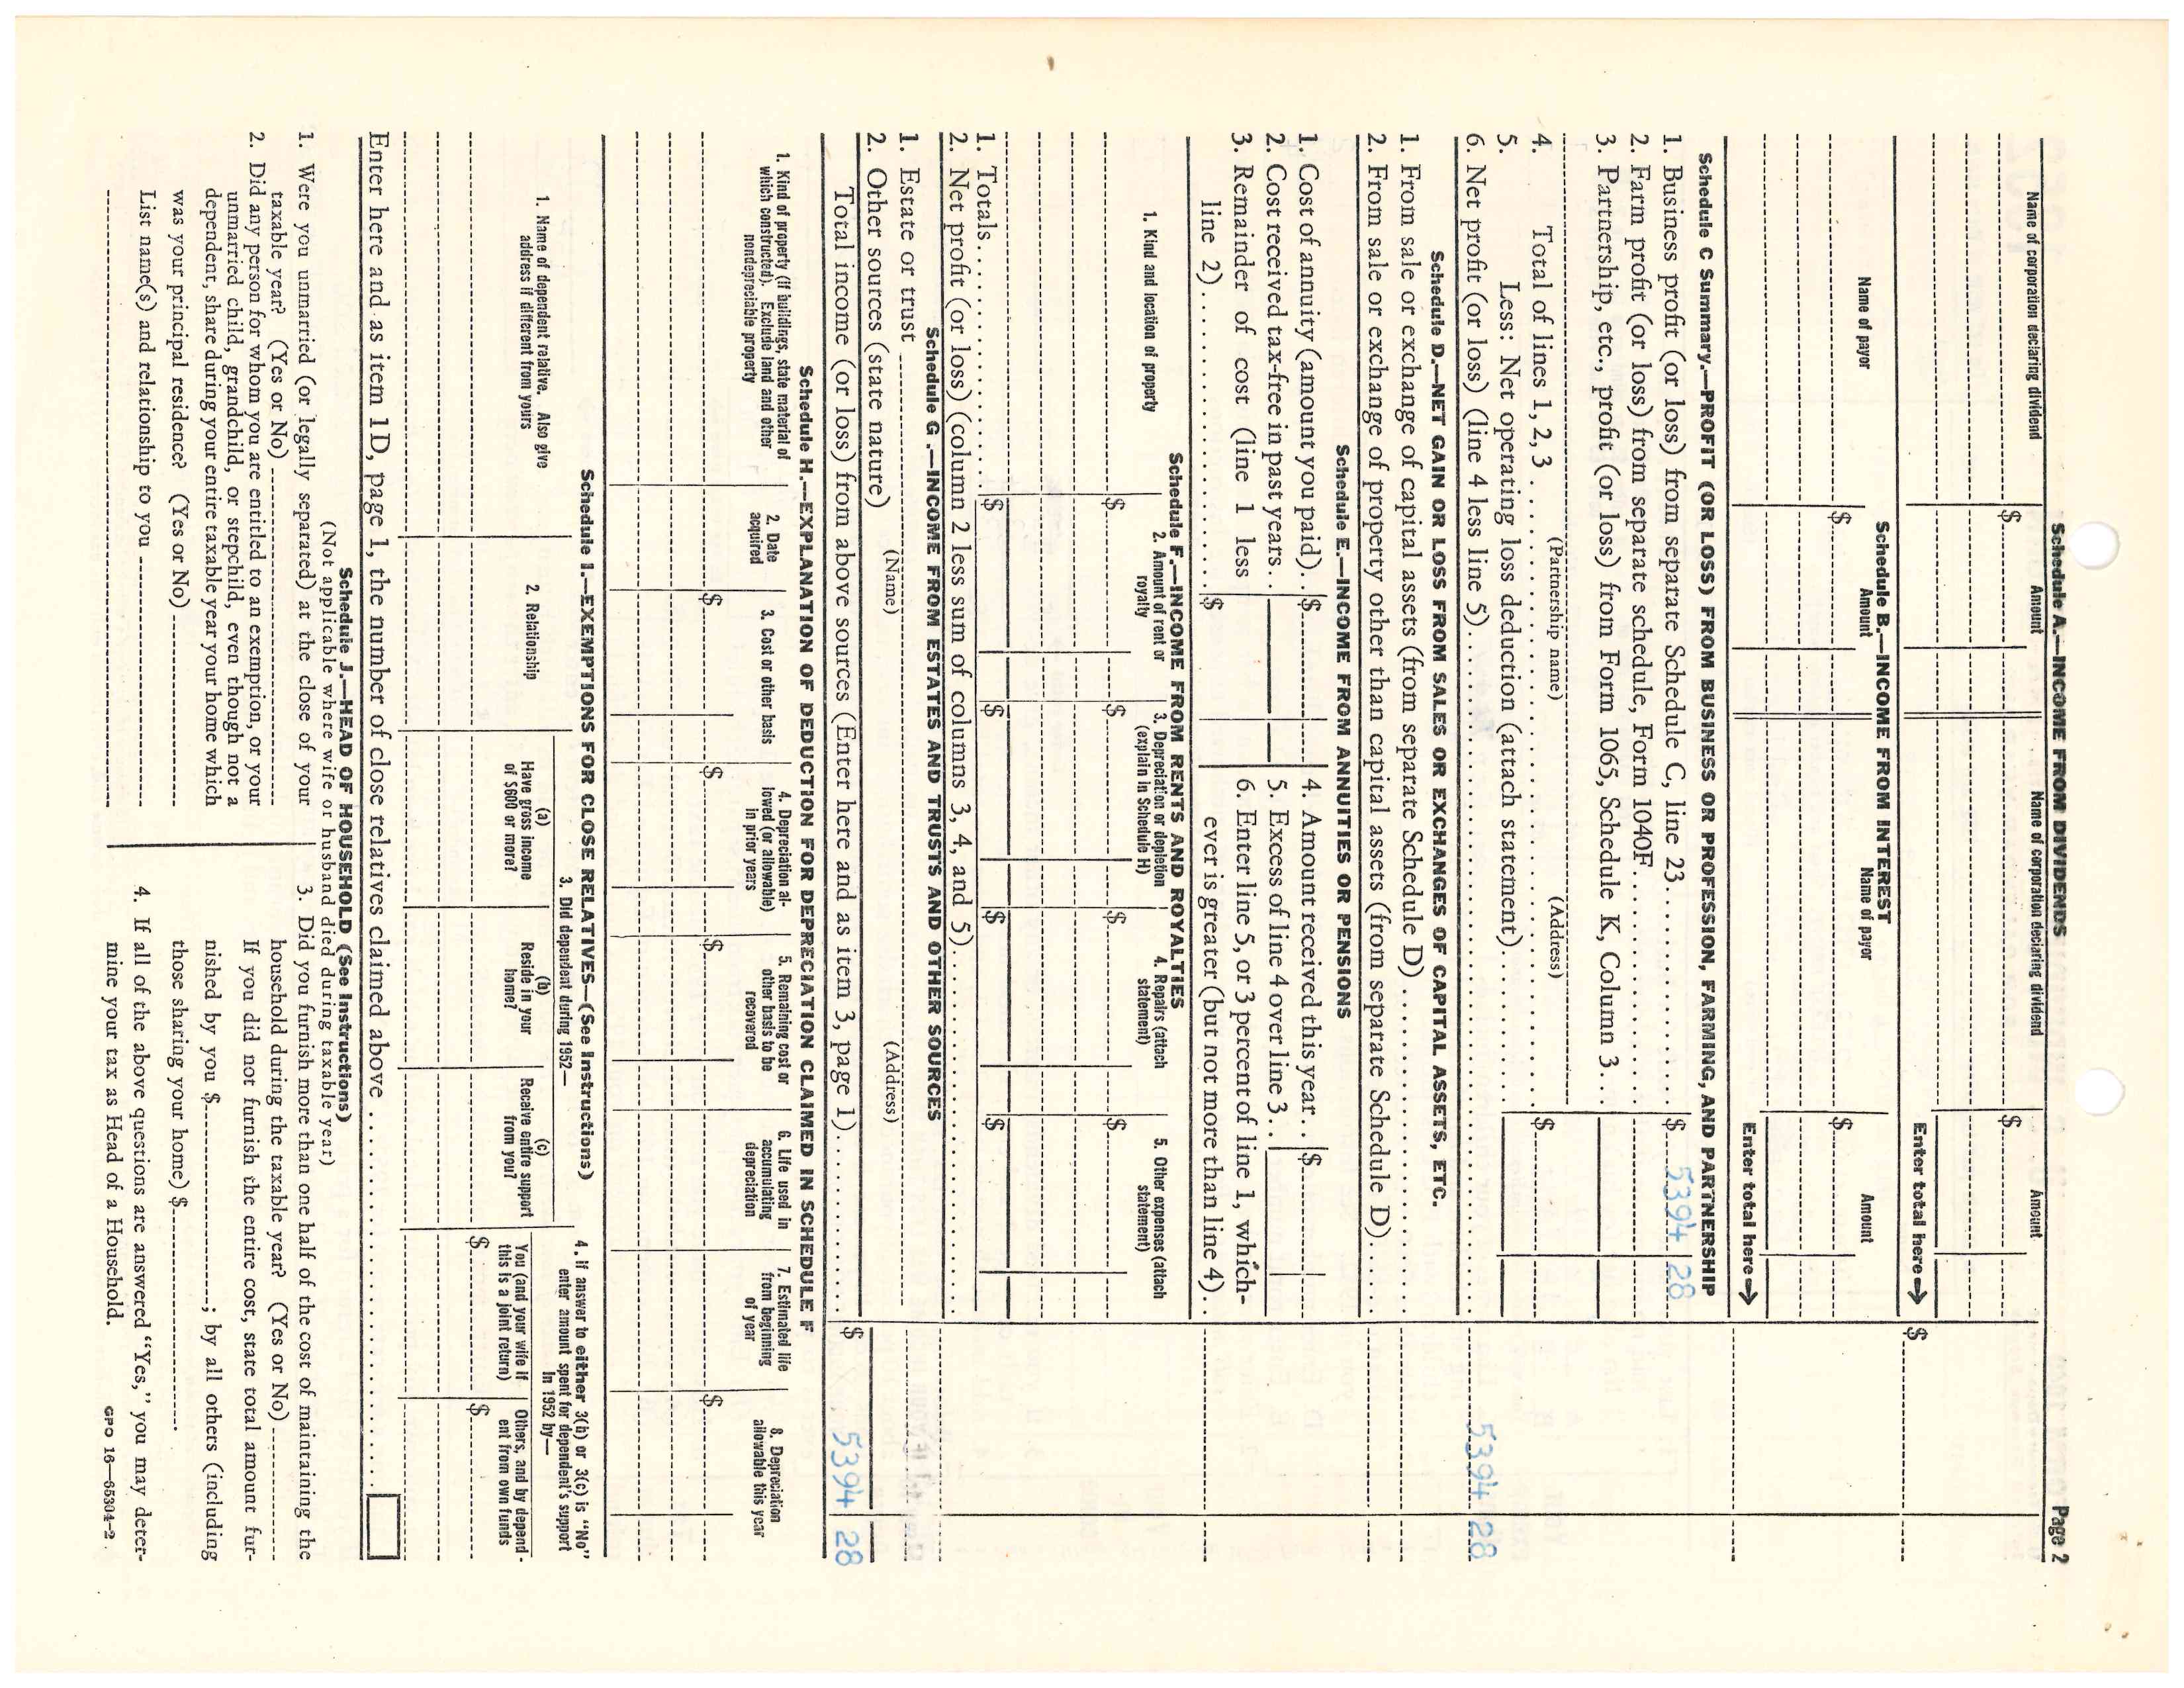 Page 2
Schedule A.—INCOME FROM DIVIDENDS
Name of corporation declaring dividend Amount Name of corporation declaring dividend Amount
$ $
Enter total here → $
Schedule B.—INCOME FROM INTEREST
Name of payor Amount Name of payor Amount
$ $
Enter total here →
Schedule C Summary.—PROFIT (OR LOSS) FROM BUSINESS OR PROFESSION, FARMING, AND PARTNERSHIP
1. Business profit (or loss) from separate Schedule C, line 23 $ 5394 28
2. Farm profit (or loss) from separate schedule, Form 1040F
3. Partnership, etc., profit (or loss) from Form 1065, Schedule K, Column 3
(Partnership name) (Address)
4. Total of lines 1, 2, 3 $
5. Less: Net operating loss deduction (attach statement)
6. Net profit (or loss) (line 4 less line 5) 5394 28
Schedule D.—NET GAIN OR LOSS FROM SALES OR EXCHANGES OF CAPITAL ASSETS, ETC.
1. From sale or exchange of capital assets (from separate Schedule D)
2. From sale or exchange of property other than capital assets (from separate Schedule D)
Schedule E.—INCOME FROM ANNUITIES OR PENSIONS
1. Cost of annuity (amount you paid) $
2. Cost received tax-free in past years
3. Remainder of cost (line 1 less
line 2) $
4. Amount received this year $
5. Excess of line 4 over line 3
6. Enter line 5, or 3 percent of line 1, which-
ever is greater (but not more than line 4)
Schedule F.—INCOME FROM RENTS AND ROYALTIES
1. Kind and location of property
2. Amount of rent or
royalty
3. Depreciation or depletion
(explain in Schedule H)
4. Repairs (attach
statement)
5. Other expenses (attach
statement)
$ $ $ $
1. Totals $ $ $ $
2. Net profit (or loss) (column 2 less sum of columns 3, 4, and 5)
Schedule G.—INCOME FROM ESTATES AND TRUSTS AND OTHER SOURCES
1. Estate or trust
(Name) (Address)
2. Other sources (state nature)
Total income (or loss) from above sources (Enter here and as item 3, page 1) $ 5394 28
Schedule H.—EXPLANATION OF DEDUCTION FOR DEPRECIATION CLAIMED IN SCHEDULE F
1. Kind of property (if buildings, state material of
which constructed). Exclude land and other
nondepreciable property
2. Date
acquired
3. Cost or other basis
4. Depreciation al-
lowed (or allowable)
in prior years
5. Remaining cost or
other basis to be
recovered
6. Life used in
accumulating
depreciation
7. Estimated life
from beginning
of year
8. Depreciation
allowable this year
$ $ $ $
Schedule I.—EXEMPTIONS FOR CLOSE RELATIVES—(See Instructions)
1. Name of dependent relative. Also give
address if different from yours
2. Relationship
3. Did dependent during 1952—
(a)
Have gross income
of $600 or more?
(b)
Reside in your
home?
(c)
Receive entire support
from you?
4. If answer to either 3(b) or 3(c) is "No"
enter amount spent for dependent's support
in 1952 by—
You (and your wife if
this is a joint return)
Others, and by depend-
ent from own funds
$ $
Enter here and as item 1D, page 1, the number of close relatives claimed above
Schedule J.—HEAD OF HOUSEHOLD (See Instructions)
(Not applicable where wife or husband died during taxable year)
1. Were you unmarried (or legally separated) at the close of your
taxable year? (Yes or No)
2. Did any person for whom you are entitled to an exemption, or your
unmarried child, grandchild, or stepchild, even though not a
dependent, share during your entire taxable year your home which
was your principal residence? (Yes or No)
List name(s) and relationship to you
3. Did you furnish more than one half of the cost of maintaining the
household during the taxable year? (Yes or No)
If you did not furnish the entire cost, state total amount fur-
nished by you $ ; by all others (including
those sharing your home) $ .
4. If all of the above questions are answered "Yes," you may deter-
mine your tax as Head of a Household.
GPO 16—65304-2